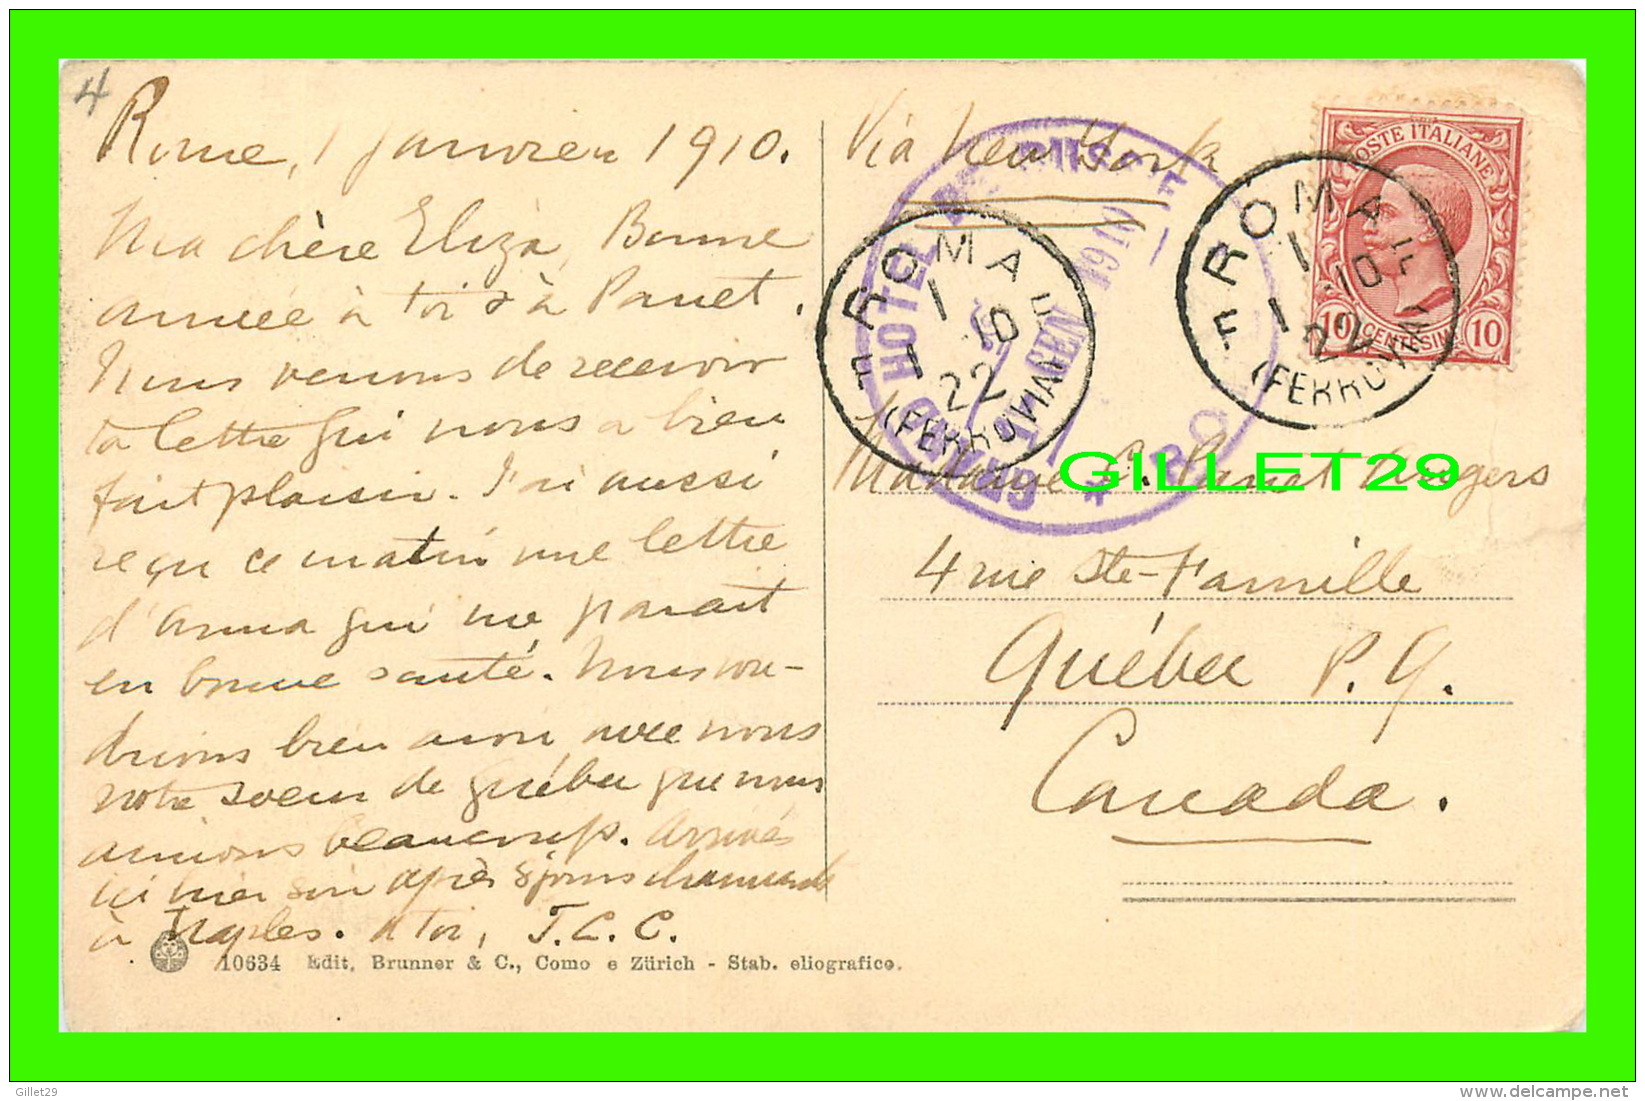 4
Rome, 1 janvier 1910.
Ma chère Eliza, Bonne
année à toi & à Panet.
Nous venons de recevoir
ta lettre qui nous a bien
fait plaisir. J'ai aussi
reçu ce matin une lettre
d'Anna qui me parait
en bonne santé. Nous vou-
drions bien avoir avec nous
notre soeur de Québec que nous
aimons beaucoup. Arrivés
ici hier soir après 8 jours charmants
à Naples. à toi, J.C.C.
10634 Edit. Brunner & C., Como e Zürich - Stab. eliografico.
Via New York
GRAND HOTEL DE RUSSIE
1 GEN 1910
* RO
ROMA
1 10
1 22
(FERROVIA)
ROMA
1 10
1 22
(FERROVIA)
POSTE ITALIANE
10 CENTESIMI 10
GILLET29
Madame Panet Angers
4 rue Ste-Famille
Québec P.Q.
Canada.
Gillet29
www.delcampe.net